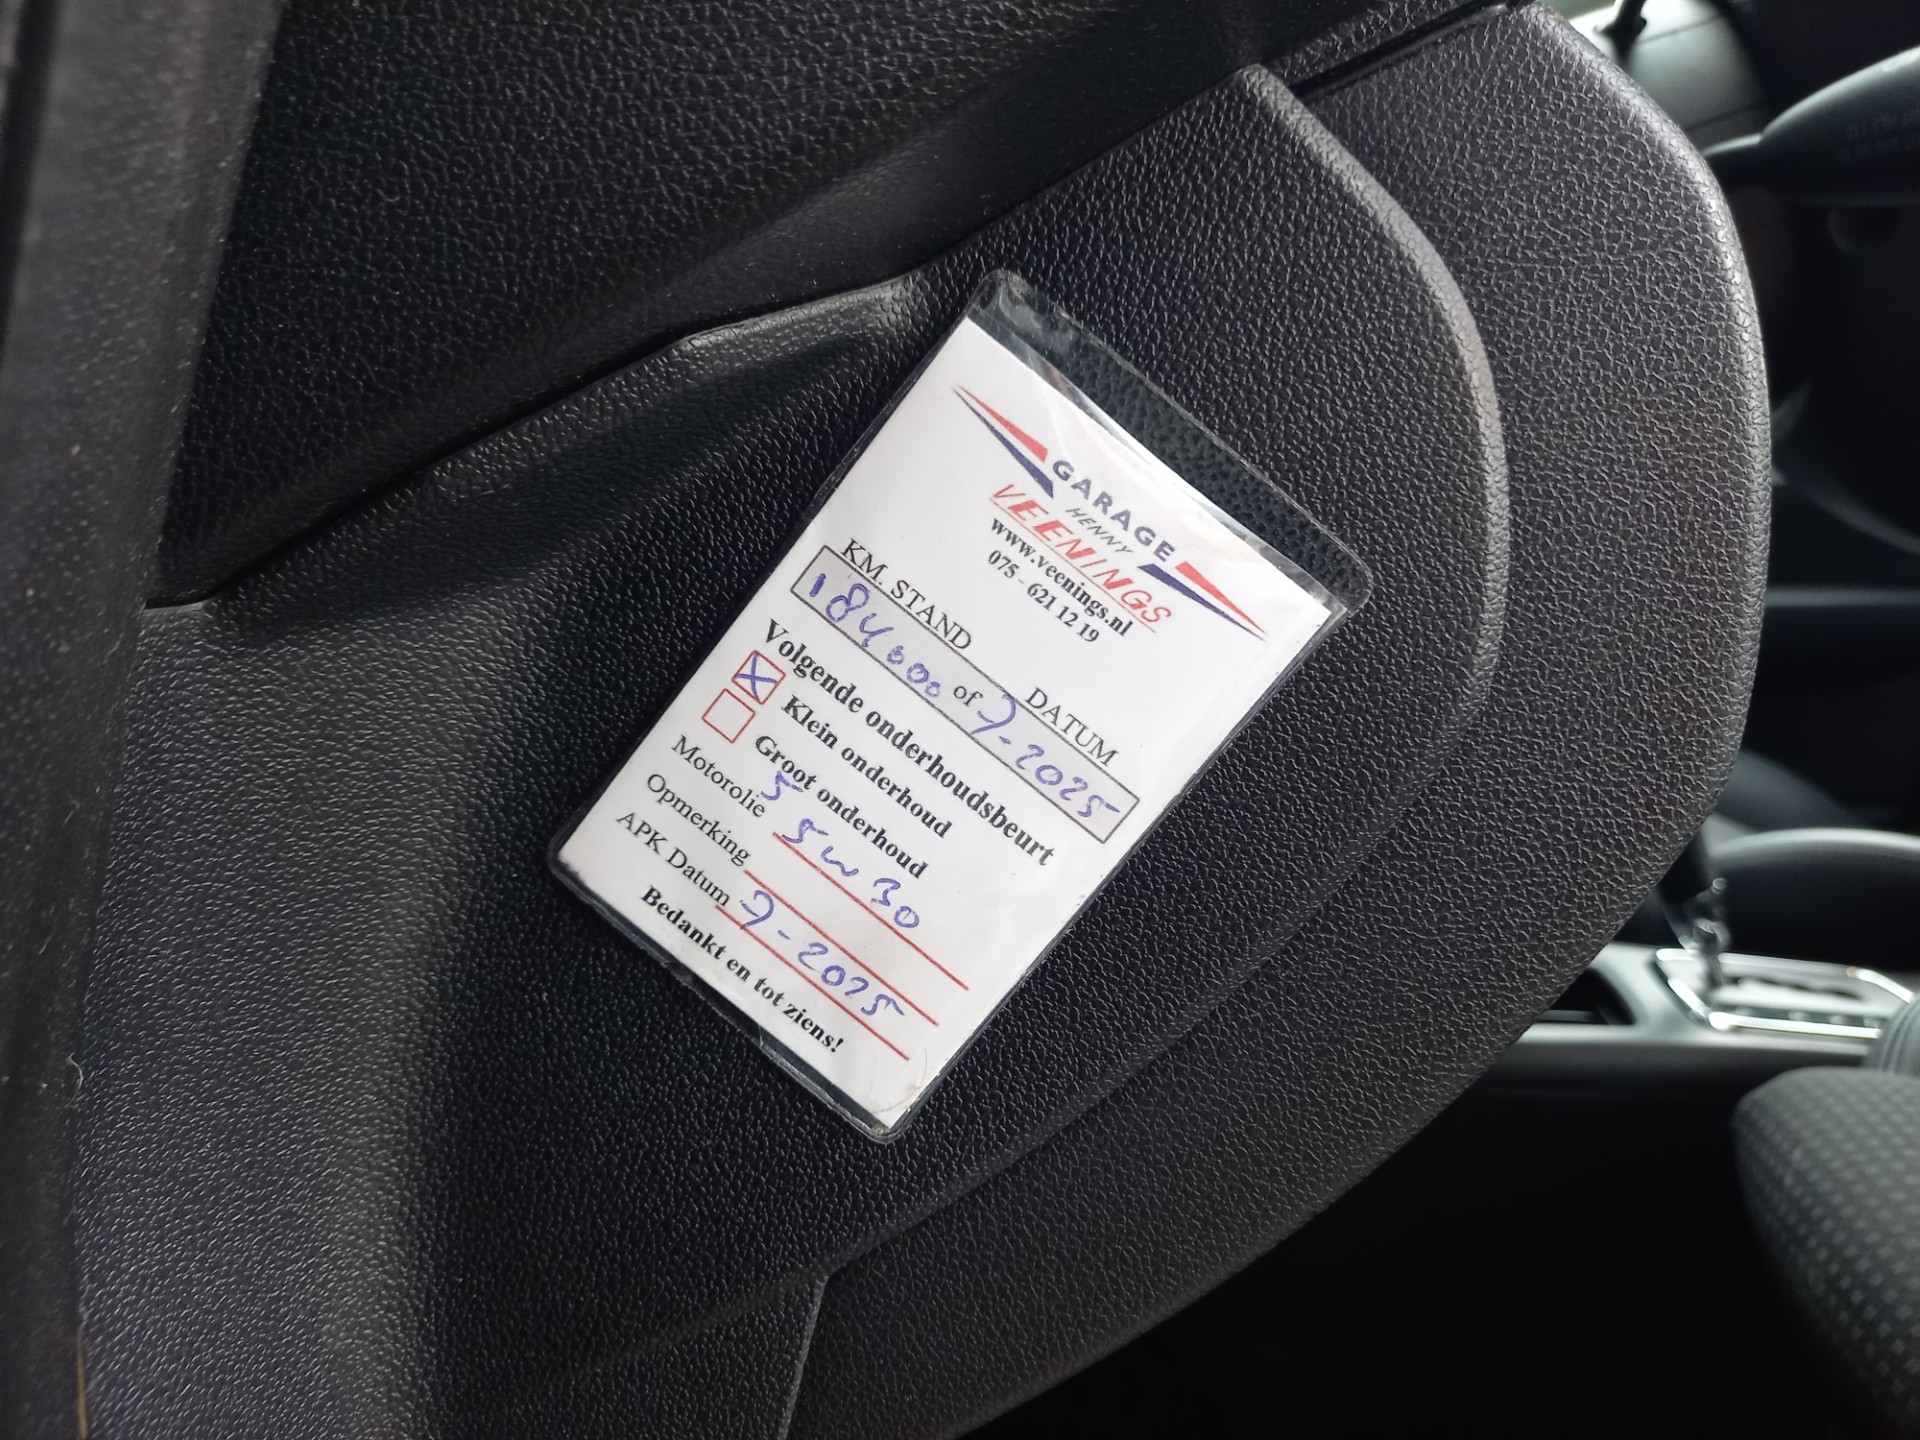 GARAGE
HENNY
VEENINGS
www.veenings.nl
075 - 621 12 19
KM. STAND DATUM
184000 of 7-2025
Volgende onderhoudsbeurt
Klein onderhoud
Groot onderhoud
5
Motorolie 5w30
Opmerking
APK Datum 7-2025
Bedankt en tot ziens!